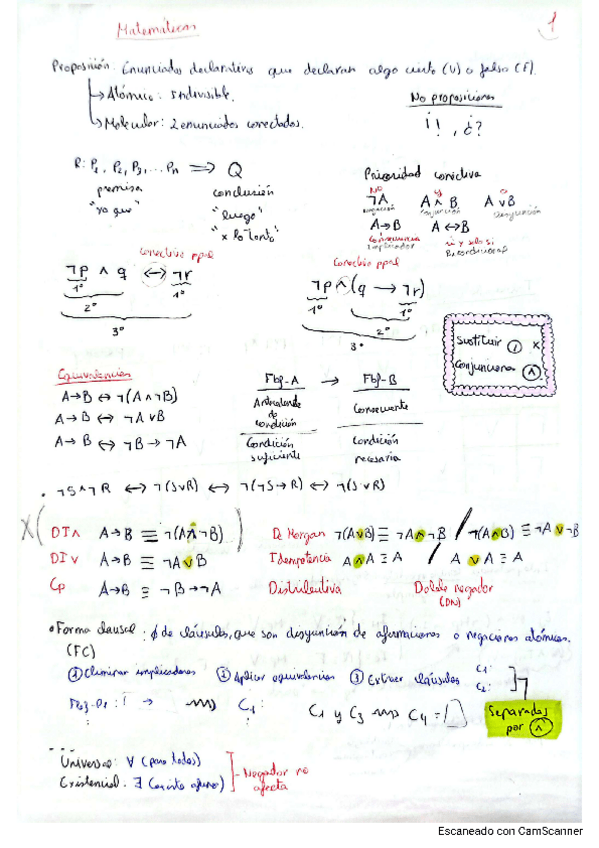 Matemáticas
1
Proposición: Enunciados declarativos que declaran algo cierto (V) o falso (F).
→ Atómico: indivisible.
→ Molecular: 2 enunciados conectados.
No proposiciones
¡!, ¿?
R: P₁, P₂, P₃, ... Pn ⟹ Q
premisa
"ya que"
conclusión
"luego"
"x lo tanto"
Prioridad conectiva
NO y o
¬A A ∧ B A ∨ B
negación conjunción disyunción
A→B A↔B
implicador
si y solo si
Bicondicional
conectiva ppal
¬p ∧ q ↔ ¬r
1º 1º
2º
3º
Conectiva ppal
¬p ∧ (q → ¬r)
1º 1º
2º
3º
sustituir , x
conjunciones ∧
Equivalencias
A→B ↔ ¬(A∧¬B)
A→B ↔ ¬A∨B
A→B ↔ ¬B→¬A
Fbf-A → Fbf-B
Antecedente de condición
Consecuente
Condición suficiente
Condición necesaria
• ¬S∧¬R ↔ ¬(S∨R) ↔ ¬(¬S→R) ↔ ¬(S∨R)
X( DI∧ A→B ≡ ¬(A∧¬B) )
DI∨ A→B ≡ ¬A∨B
Cp A→B ≡ ¬B→¬A
De Morgan ¬(A∨B) ≡ ¬A∧¬B / ¬(A∧B) ≡ ¬A∨¬B
Idempotencia A∧A ≡ A / A∨A ≡ A
Distributiva
Doble negador
(DN)
• Forma clausal: de cláusulas, que son disyunción de afirmaciones o negaciones atómicas.
(FC)
① Eliminar implicadores ② Aplicar equivalencias ③ Extraer cláusulas C1: C2:
C1:
C1 y C3 C4 =
Separadas
por ∧
Universal: ∀ (para todos)
Existencial: ∃
- Negador no
afecta
Escaneado con CamScanner